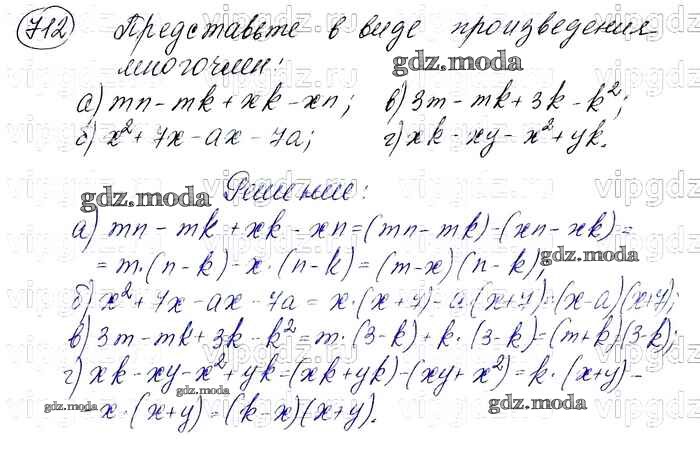 712 Представьте в виде произведения
многочлен:
а) mn - mk + xk - xn; в) 3m - mk + 3k - k²;
б) x² + 7x - ax - 7a; г) xk - xy - x² + yk.
Решение:
а) mn - mk + xk - xn = (mn - mk) - (xn - xk) =
= m·(n - k) - x·(n - k) = (m - x)(n - k);
б) x² + 7x - ax - 7a = x·(x + 7) - a·(x + 7) = (x - a)(x + 7);
в) 3m - mk + 3k - k² = m·(3 - k) + k·(3 - k) = (m + k)(3 - k);
г) xk - xy - x² + yk = (xk + yk) - (xy + x²) = k·(x + y) -
- x·(x + y) = (k - x)(x + y).
gdz.moda
gdz.moda
gdz.moda
gdz.moda
gdz.moda
gdz.moda
vipgdz